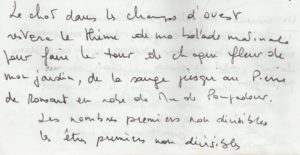 Le chat dans les champs d'ouest
 thème de ma balade matinale
pour faire le tour de chaque fleur de
mon jardin, de la sauge jusqu'au Pierre
de Ronsard en robe de Mme de Pompadour.
Les nombres premiers non divisibles
les êtres premiers non divisibles